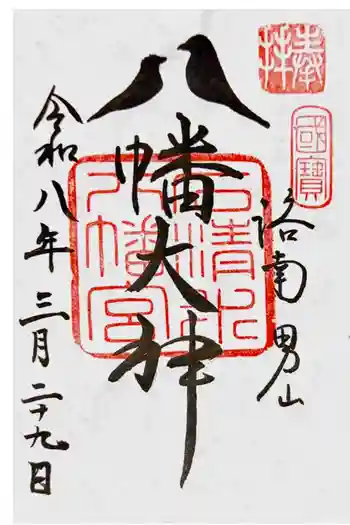 奉拝
國寶
洛南 男山
八幡大神
石清水
八幡宮
令和八年 三月 二十九日